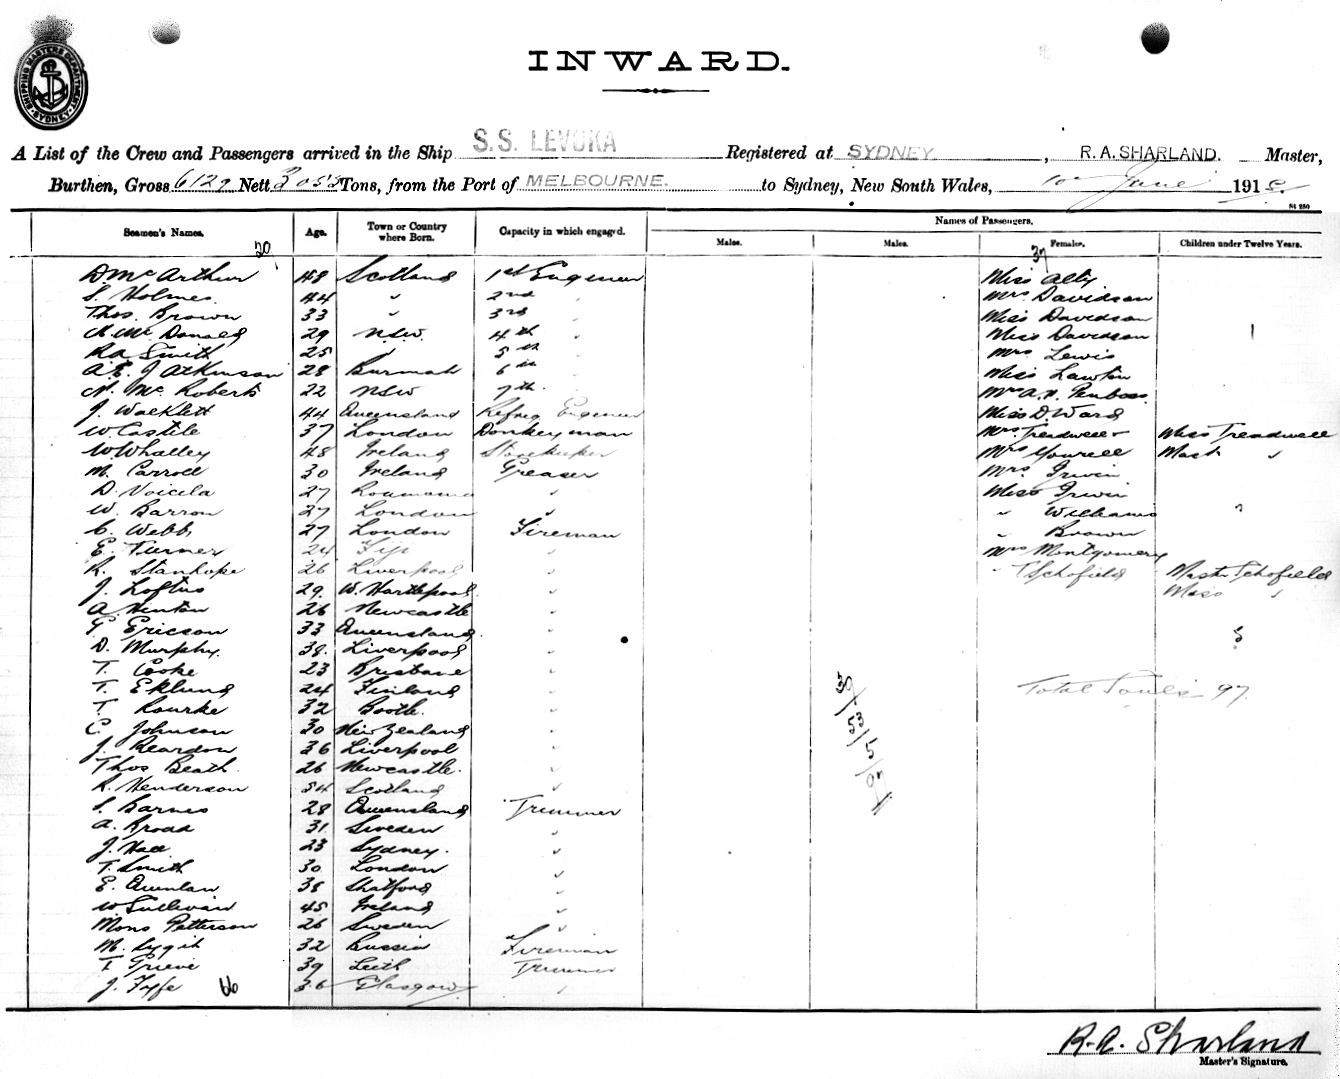 SHIPPING MASTERS DEPARTMENT SYDNEY
INWARD.
A List of the Crew and Passengers arrived in the Ship S.S. LEVUKA Registered at SYDNEY, R.A. SHARLAND. Master,
Burthen, Gross 6129 Nett Tons, from the Port of MELBOURNE. to Sydney, New South Wales, 10 June 1915
St 250
Seamen's Names. Age. Town or Country where Born. Capacity in which engaged. Names of Passengers.
Males. Males. Females. Children under Twelve Years.
20 37
D McArthur 48 Scotland 1st Engineer Miss Alty
S. Holmes 44 " 2nd " Mrs Davidson
Thos. Brown 33 " 3rd " Miss Davidson
McDonald 29 NSW 4th " Miss Davidson 1
R A Smith 25 " 5th " Mrs Lewis
A.E. J Atkinson 28 Burmah 6th " Miss Lawton
N. McRoberts 22 NSW 7th " Mrs A.
J. Wacklett 44 Queensland Refrig Engineer Miss D. Ward
W Castile 37 London Donkeyman Mrs. Treadwell Miss Treadwell
W Whalley 48 Ireland Storekeeper Mrs Yourell Mast "
M. Carroll 30 Ireland Greaser Mrs Irwin
D. Voicila 27 Roumania " Miss Irwin
W. Barron 27 London " " Williams "
C. Webb 27 London Fireman " Brown
E. Turner 24 Fiji " Mrs Montgomery
R. Stanhope 26 Liverpool " " Schofield Mastr Schofield
J. Loftus 29. W. Hartlepool " Miss "
A Hinton 26 Newcastle "
G Ericson 33 Queensland " 5
D. Murphy. 38. Liverpool "
T. Cooke 23 Brisbane "
T. Eklund 24 Finland " Total Souls 97
T. Rourke 32 Bootle. "
C. Johnson 30 New Zealand "
J. Reardon 36 Liverpool "
Thos Beath 26 Newcastle. "
R. Henderson 54 Scotland "
S. Barnes 28 Queensland Trimmer
A. Broad 31 Sweden "
J. Hall 23 Sydney. "
T. Smith 30 London "
E. Quinlan 38 "
W Sullivan 45 Ireland "
Mons Petterson 26 Sweden "
M. Sygit 32 Russia Fireman
T Grieve 39 Leith Trimmer
J. Fyfe 66 36 Glasgow "
39/53/5/97
R. A. Sharland
Master's Signature.